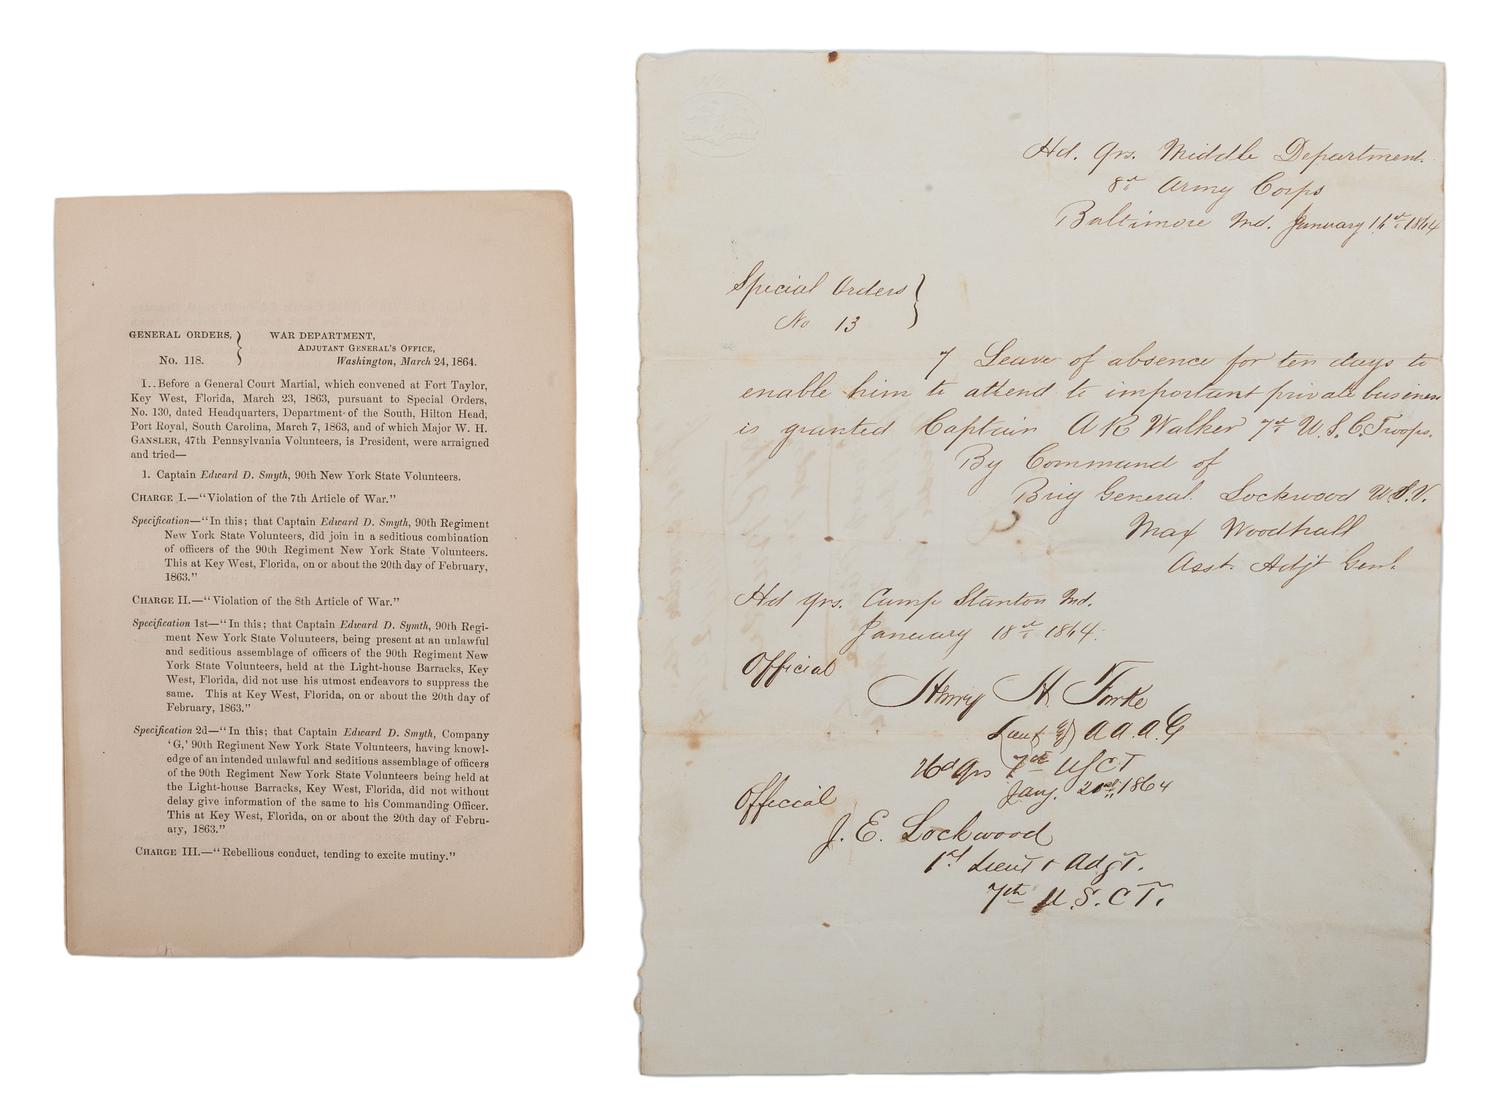 GENERAL ORDERS, } WAR DEPARTMENT,
ADJUTANT GENERAL'S OFFICE,
No. 118. Washington, March 24, 1864.
I.. Before a General Court Martial, which convened at Fort Taylor,
Key West, Florida, March 23, 1863, pursuant to Special Orders,
No. 130, dated Headquarters, Department of the South, Hilton Head,
Port Royal, South Carolina, March 7, 1863, and of which Major W. H.
GANSLER, 47th Pennsylvania Volunteers, is President, were arraigned
and tried—
1. Captain Edward D. Smyth, 90th New York State Volunteers.
CHARGE I.—"Violation of the 7th Article of War."
Specification—"In this; that Captain Edward D. Smyth, 90th Regiment
New York State Volunteers, did join in a seditious combination
of officers of the 90th Regiment New York State Volunteers.
This at Key West, Florida, on or about the 20th day of February,
1863."
CHARGE II.—"Violation of the 8th Article of War."
Specification 1st—"In this; that Captain Edward D. Symth, 90th Regi-
ment New York State Volunteers, being present at an unlawful
and seditious assemblage of officers of the 90th Regiment New
York State Volunteers, held at the Light-house Barracks, Key
West, Florida, did not use his utmost endeavors to suppress the
same. This at Key West, Florida, on or about the 20th day of
February, 1863."
Specification 2d—"In this; that Captain Edward D. Smyth, Company
'G,' 90th Regiment New York State Volunteers, having knowl-
edge of an intended unlawful and seditious assemblage of officers
of the 90th Regiment New York State Volunteers being held at
the Light-house Barracks, Key West, Florida, did not without
delay give information of the same to his Commanding Officer.
This at Key West, Florida, on or about the 20th day of Febru-
ary, 1863."
CHARGE III.—"Rebellious conduct, tending to excite mutiny."
Hd. Qrs. Middle Department.
8th Army Corps
Baltimore Md. January 16th 1864
Special Orders }
No 13
7 Leave of absence for ten days to
enable him to attend to important private business
is granted Captain A R Walker 7th U.S.C. Troops.
By Command of
Brig General Lockwood U.S.V.
Max Woodhull
Asst. Adjt Genl.
Hd qrs. Camp Stanton Md.
January 18th 1864.
Official
Henry H.
Lieut & A A A G
Hd Qrs 7th USCT
Jany. 1864
Official
J. E. Lockwood
1st Lieut & Adgt.
7th U.S.C T.